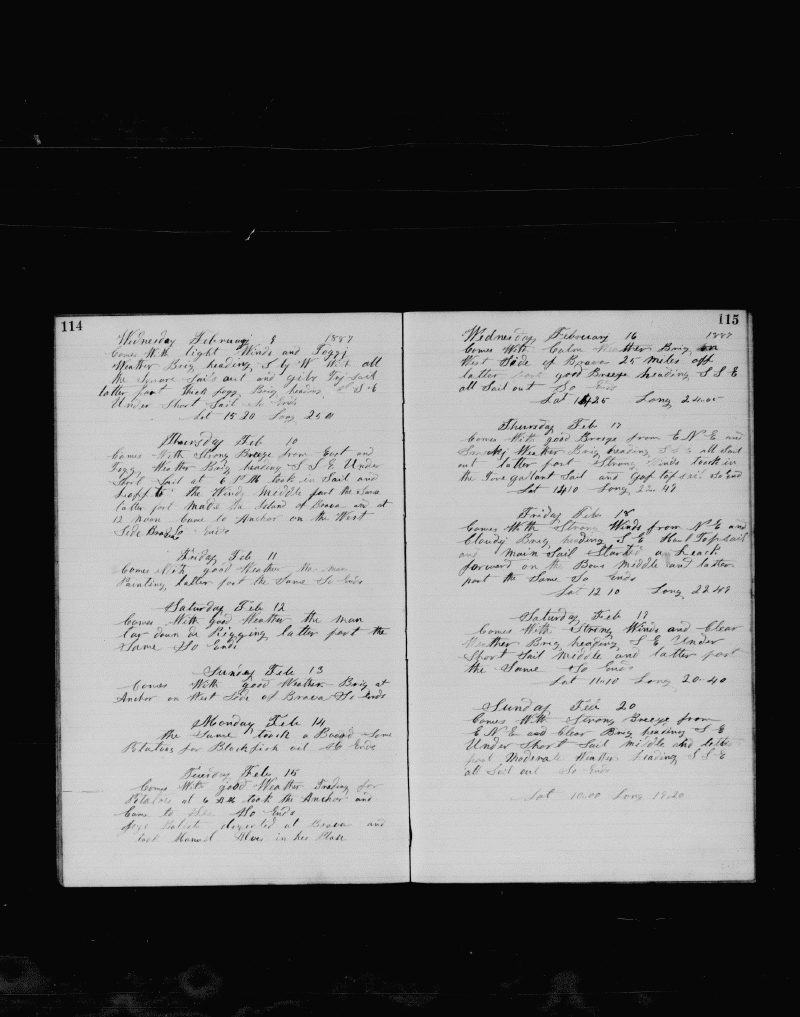 114
Wednesday February 9 1887
Comes With light Winds and Foggy
Weather Brig heading S by W With all
the Square Sails out and gibs Try Sail
latter part thick fogg Brig heading S S E
Under Short Sail So Ends
Lat 15 20 Long
Thursday Feb 10
Comes With Strong Breeze from East and
Fogg Weather Brig heading S S E Under
Short Sail at 6 P M took in Sail and
to the Wind Middle part the Same
latter part made the Island of Brava and at
12 Noon Came to Anchor on the West
Side Brava So Ends
Friday Feb 11
Comes With good Weather the man
Painting latter part the Same So Ends
Saturday Feb 12
Comes With good Weather the man
tar down de Rigging latter part the
Same So Ends
Sunday Feb 13
Comes With good Weather Brig at
Anchor on West Side of Brava So Ends
Monday Feb 14
the Same took a Board Some
Potatoes for Blackfish oil So Ends
Tuesday Feb 15
Comes With good Weather Trading for
Potatoes at 6 took the Anchor and
Came to Sea So Ends
deserted at Brava and
took Manuel in his Place
115
Wednesday February 16
Comes With Calm Weather Brig on
West Side of Brava 25 miles off
latter part good Breeze heading S S E
all Sail out So Ends
Lat 14 25 Long
Thursday Feb 17
Comes With good Breeze from E N E and
Smoky Weather Brig heading S S E all Sail
out latter part Strong Winds took in
the Fore gallant Sail and Gaf top sail So End
Lat Long
Friday Feb 18
Comes With Strong Winds from N E and
Cloudy Brig heading S E Haul Topsail
and main Sail Started a Leack
forward on the Bows Middle and latter
part the Same So Ends
Lat 12 10 Long 22 48
Saturday Feb 19
Comes With Strong Winds and Clear
Weather Brig heading S E Under
Short Sail Middle and latter part
the Same So Ends
Lat 11-10 Long 20-40
Sunday Feb 20
Comes With Strong Breeze from
E N E and Clear Brig heading S E
Under Short Sail Middle and latter
part Moderate Weather heading S S E
all Sail out So Ends
Lat 10-00 Long 19-20